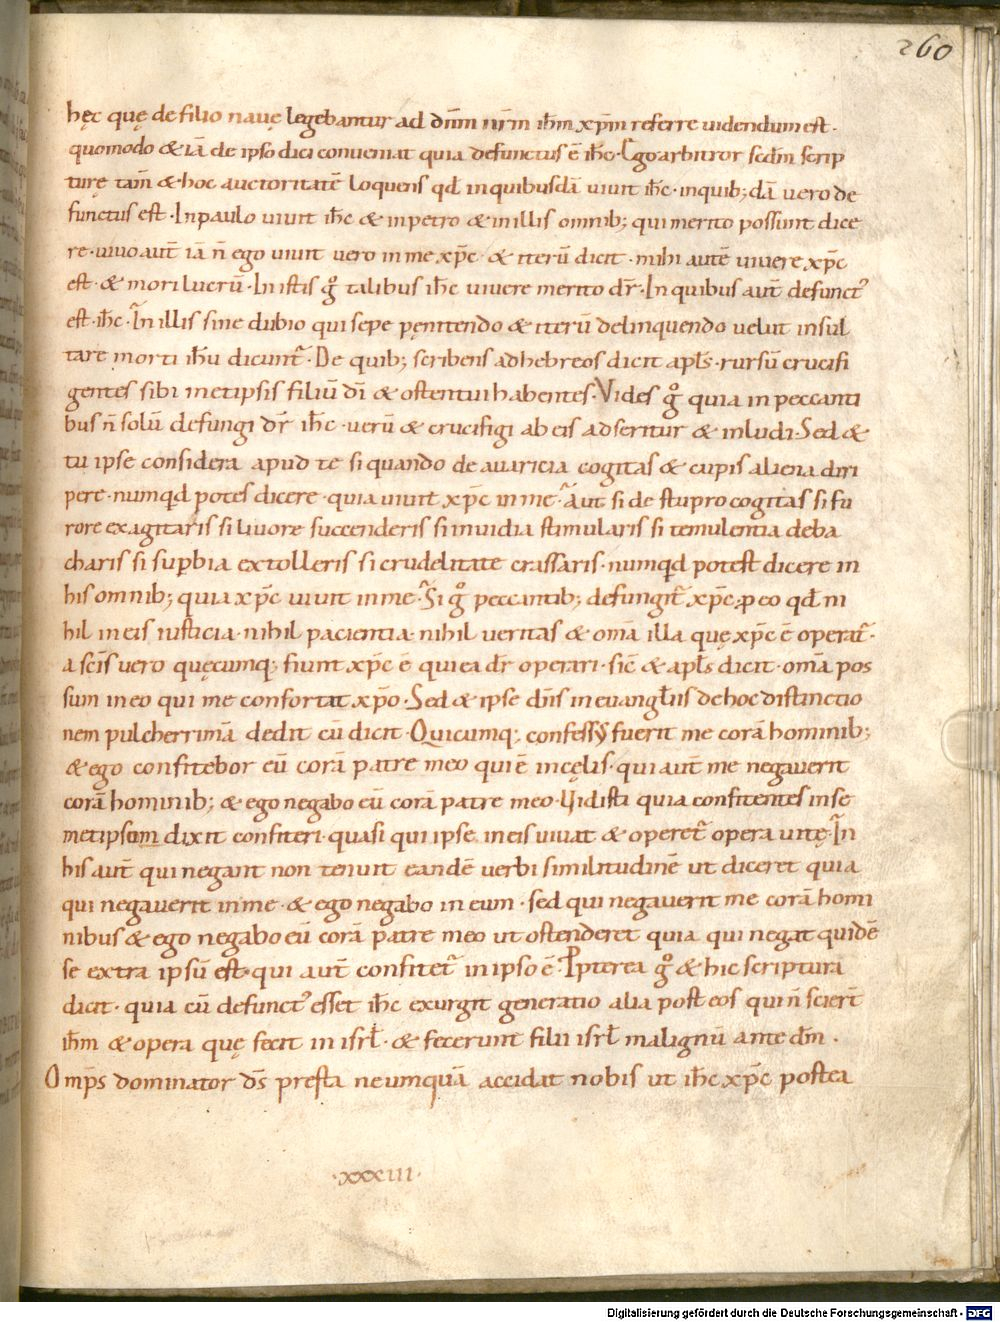 260
hęc quę de filio navę legebantur ad dn̄m nr̄m ih̄m xp̄m referre uidendum est·
quomodo & iā de ipso dici conueniat quia defunctus ē ih̄c· Ego arbitror scdm̄ scrip
turę tam̄ & hoc auctoritatē loquens qd̄ inquibusdā uiuit ih̄c· inquib; dā uero de
functus est· In paulo uiuit ih̄c & inpetro & inillis omnib; qui merito possunt dice
re· uiuo aut̄ iā n̄ ego uiuit uero in me xp̄c· & iterū dicit· mihi autē uiuere xp̄c
est· & mori lucrū· In istis gͦ talibus ih̄c uiuere merito dr̄· In quibus aut̄ defunct᾿
est· ih̄c· In illis sine dubio qui sepe pęnitendo & iterū delinquendo uelut insul
tare morti ih̄u dicunt᷑· De quib; scribens adhebreos dicit apl̄s· rursū crucifi
gentes sibi metipsis filiū dī & ostentui habentes· Vides gͦ quia in peccanti
bus n̄ solū defungi dr̄ ih̄c· uerū & crucifigi ab eis adseritur & inludi· Sed &
tu ipse considera apud te si quando de auaricia cogitas & cupis aliena diri
pere· numqd̄ potes dicere· quia uiuit xp̄c in me· Aut si de stupro cogitas si fu
rore exagitaris si liuore succenderis si inuidia stimularis si temulentia deba
charis si sup̄bia extolleris si crudelitate crassaris· numqd̄ potest dicere in
his omnib; quia xp̄c uiuit in me· Si gͦ peccantib; defungit᷑ xp̄c ꝓ eo qd̄ ni
hil in eis iusticia· nihil pacientia· nihil ueritas & om̄a illa quę xp̄c ē operat᷑·
a sc̄is uero quęcumq; fiunt xp̄c ē qui ea dr̄ operari· sic̄ & apl̄s dicit· om̄a pos
sum in eo qui me confortat xp̄o· Sed & ipse dn̄s in euangl̄iis de hoc distinctio
nem pulcherrimā dedit cū dicit· Quicumq; confessꝰ fuerit me corā hominib;
& ego confitebor eū corā patre meo qui ē in cęlis· qui aut̄ me negauerit
corā hominib; & ego negabo eū corā patre meo· Uidisti quia confitentes inse
metipsum dixit confiteri· quasi qui ipse in eis uiuat & operet᷑ opera uitę· In
his aut̄ qui negant non tenuit eandē uerbi similitudinē ut diceret quia
qui negauerit in me· & ego negabo in eum· sed qui negauerit me corā homi
nibus & ego negabo eū corā patre meo ut ostenderet quia qui negat quidē
se extra ipsū est· qui aut̄ confitet᷑ in ipso ē· Ppterea gͦ & hic scriptura
dicit· quia cū defunct᾿ esset ih̄c exurgit generatio alia post eos qui n̄ scier̄t
ih̄m & opera quę fecit in isrl̄· & fecerunt filii isrl̄ malignū ante dm̄·
Omp̄s dominator ds̄ presta ne umquā accidat nobis ut ih̄c xp̄c postea
·xxxiii·
Digitalisierung gefördert durch die Deutsche Forschungsgemeinschaft - DFG